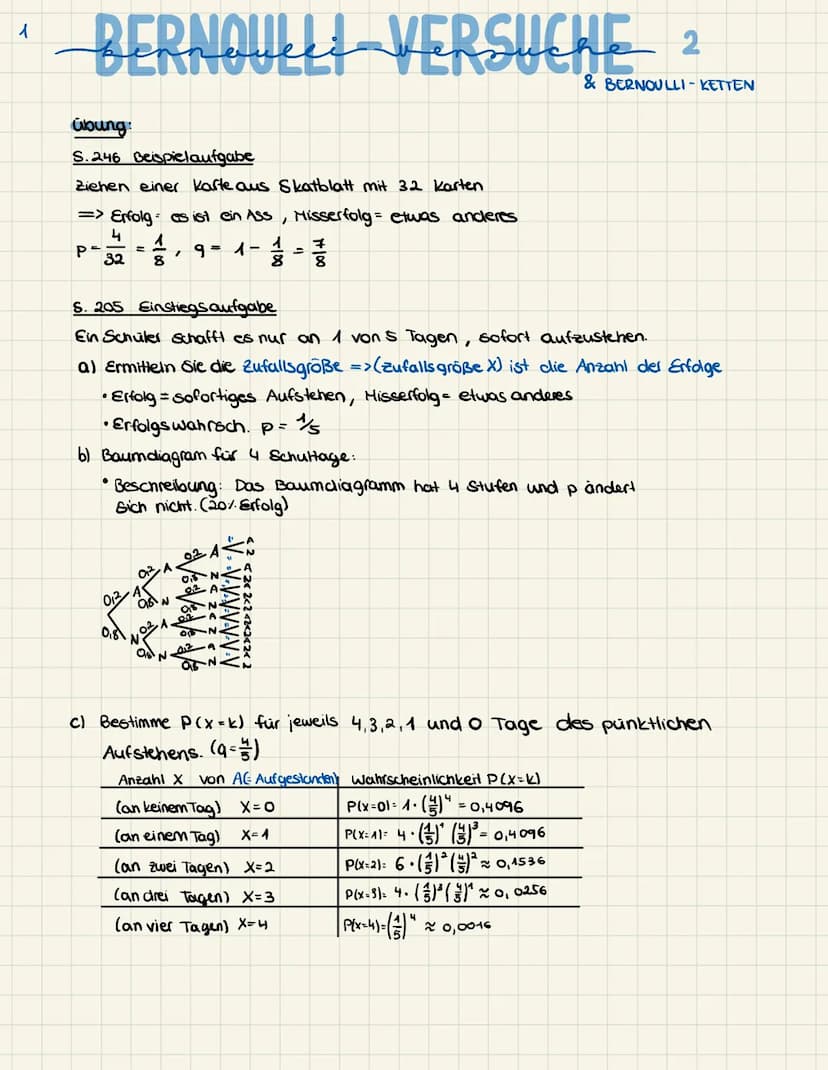 1
BERNOULLI-VERSUCHE 2
bernoulli-versuche
& BERNOULLI-KETTEN
Übung:
S. 246 Beispielaufgabe
Ziehen einer Karte aus Skatblatt mit 32 Karten
=> Erfolg = es ist ein Ass, Misserfolg = etwas anderes
p = 4/32 = 1/8, q = 1 - 1/8 = 7/8
S. 205 Einstiegsaufgabe
Ein Schüler schafft es nur an 1 von 5 Tagen, sofort aufzustehen.
a) Ermitteln Sie die Zufallsgröße => (Zufallsgröße X) ist die Anzahl der Erfolge
• Erfolg = sofortiges Aufstehen, Misserfolg = etwas anderes
• Erfolgswahrsch. p = 1/5
b) Baumdiagram für 4 Schultage:
• Beschreibung: Das Baumdiagramm hat 4 Stufen und p ändert
sich nicht. (20% Erfolg)
0,2 A 0,2 A 0,2 A A
N
0,8 N A
N
0,8 N 0,2 A A
N
0,8 N A
N
0,8 N 0,2 A 0,2 A A
N
0,8 N A
N
0,8 N 0,2 A A
N
0,8 N A
N
c) Bestimme P(X=k) für jeweils 4,3,2,1 und 0 Tage des pünktlichen
Aufstehens. (q=4/5)
Anzahl X von A(= Aufgestanden) Wahrscheinlichkeit P(X=k)
(an keinem Tag) X=0 P(X=0)= 1·(4/5)⁴ = 0,4096
(an einem Tag) X=1 P(X=1)= 4·(1/5)¹ (4/5)³ = 0,4096
(an zwei Tagen) X=2 P(X=2)= 6·(1/5)²(4/5)² ≈ 0,1536
(an drei Tagen) X=3 P(X=3)= 4·(1/5)³(4/5)¹ ≈ 0,0256
(an vier Tagen) X=4 P(X=4)=(1/5)⁴ ≈ 0,0016